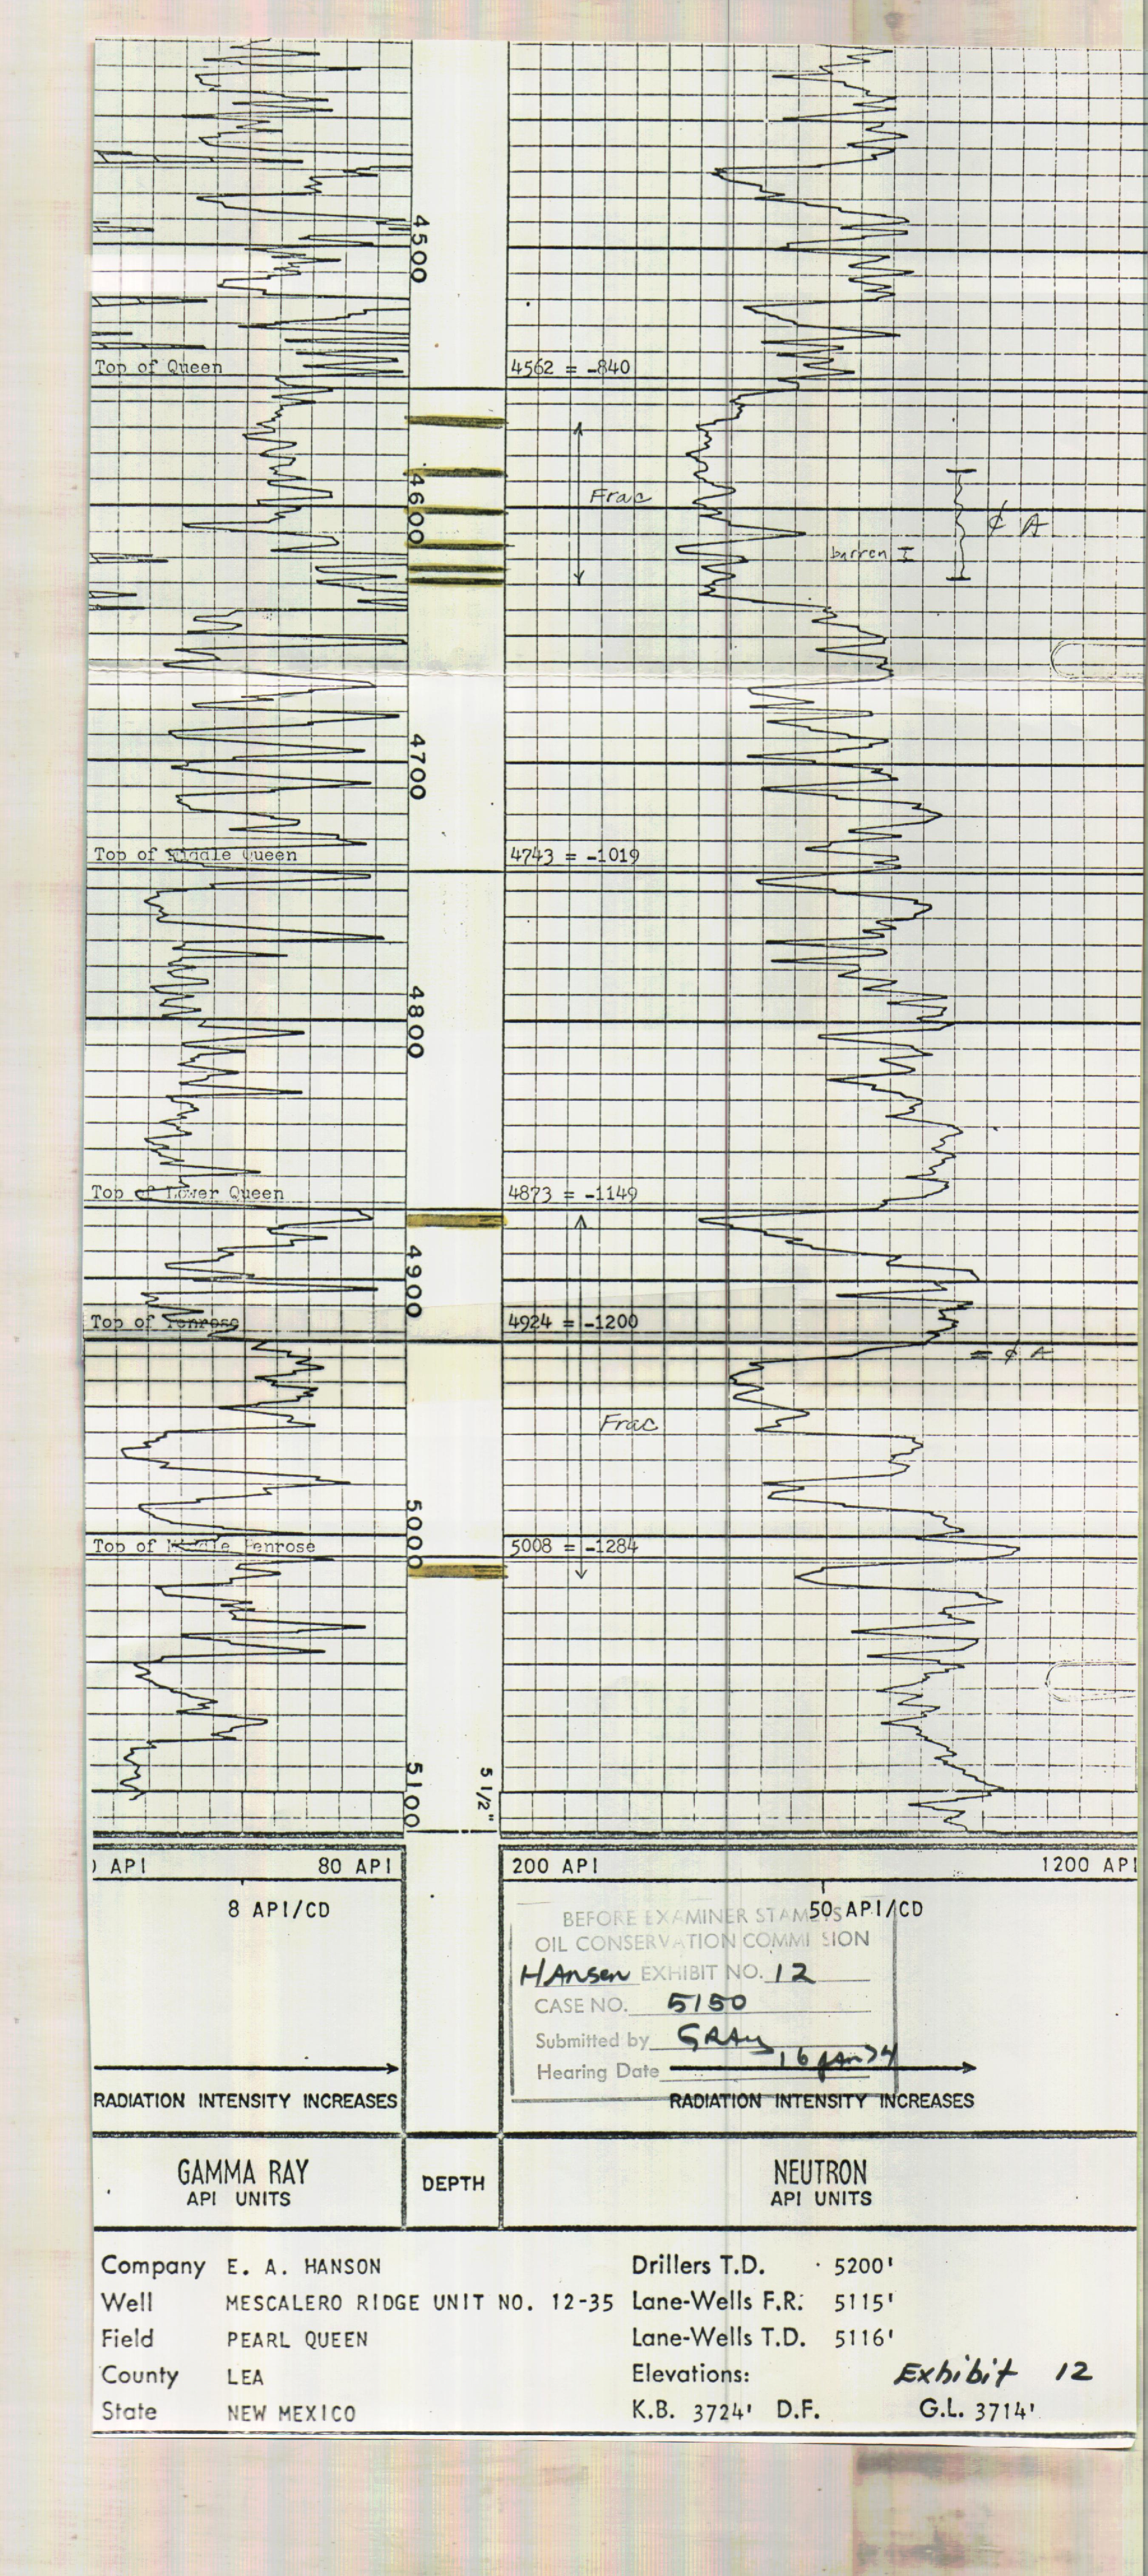 4500
Top of Queen 4562 = -840
Frac
4600
¢ A
barren
4700
Top of Middle Queen 4743 = -1019
4800
Top of Lower Queen 4873 = -1149
4900
Top of Penrose 4924 = -1200
= ¢ A
Frac
5000
Top of Middle Penrose 5008 = -1284
5100
5 1/2"
) API 80 API 200 API 1200 API
8 API/CD 50 API/CD
BEFORE EXAMINER STAMETS
OIL CONSERVATION COMMISSION
HAnsen EXHIBIT NO. 12
CASE NO. 5150
Submitted by GRAy
Hearing Date 16 JAN 74
RADIATION INTENSITY INCREASES RADIATION INTENSITY INCREASES
GAMMA RAY
API UNITS
DEPTH
NEUTRON
API UNITS
Company E. A. HANSON Drillers T.D. 5200'
Well MESCALERO RIDGE UNIT NO. 12-35 Lane-Wells F.R. 5115'
Field PEARL QUEEN Lane-Wells T.D. 5116'
County LEA Elevations: Exhibit 12
State NEW MEXICO K.B. 3724' D.F. G.L. 3714'